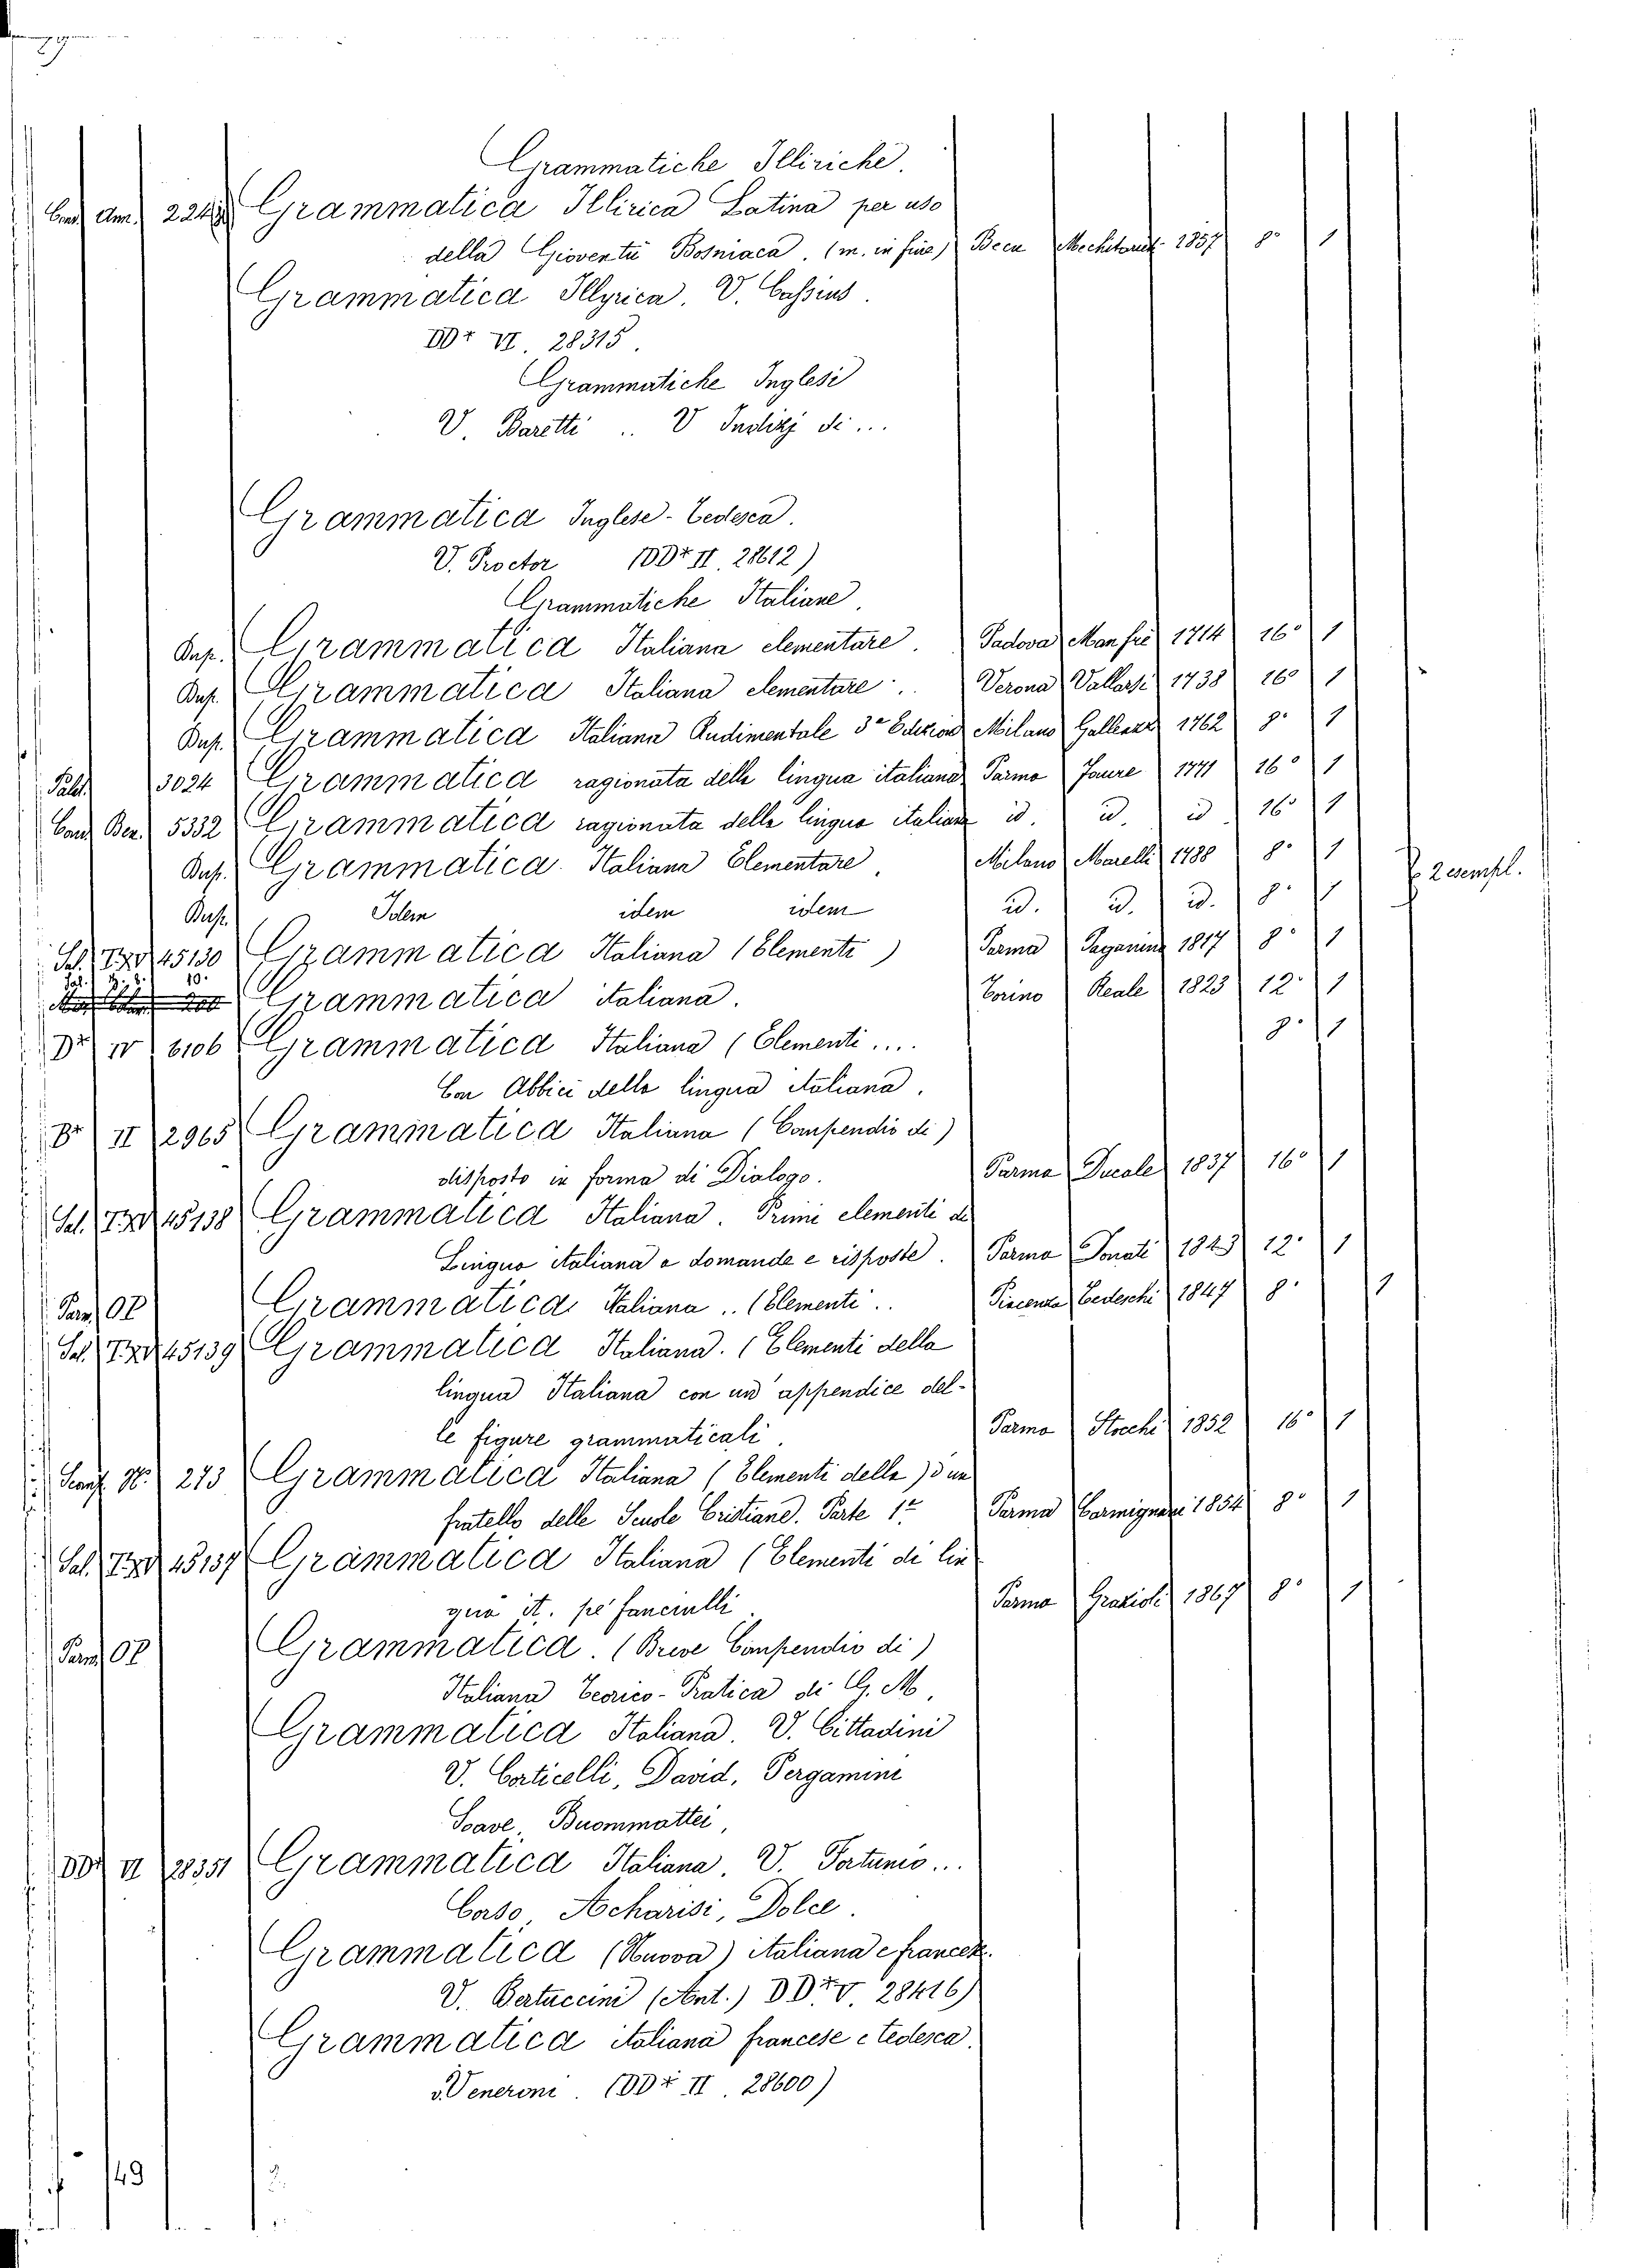 Grammatiche Illiriche.
Grammatica Illirica Latina per uso
della Gioventù Bosniaca. (m. in fine) Becu 1857 8° 1
Grammatica Illyrica. V. Cassius.
DD* VI. 28315.
Grammatiche Inglesi
V. Baretti .. V Indizj di ...
Grammatica Inglese-Tedesca.
V. Proctor (DD* II. 28612)
Grammatiche Italiane.
Grammatica Italiana elementare. Padova Manfrè 1714 16° 1
Grammatica Italiana elementare .. Verona Vallarsi 1738 16° 1
Grammatica Italiana Rudimentale 3ª Edizione Milano 1762 8° 1
Palat. 3024 Grammatica ragionata della lingua italiana Parma Faure 1771 16° 1
Ber. 5332 Grammatica ragionata della lingua italiana id. id. id 16° 1
Grammatica Italiana Elementare, Milano Marelli 1788 8° 1
Idem idem idem id. id. id. 8° 1 2 esempl.
Sal. 45130 Grammatica Italiana (Elementi) Parma Paganino 1817 8° 1
Grammatica italiana. Torino Reale 1823 12° 1
D* IV 6106 Grammatica Italiana (Elementi.... 8° 1
Con Abbici della lingua italiana.
B* II 2965 Grammatica Italiana (Compendio di)
disposto in forma di Dialogo. Parma Ducale 1837 16° 1
Sal. 45138 Grammatica Italiana. Primi elementi di
Lingua italiana a domande e risposte. Parma Donati 1843 12° 1
Grammatica Italiana .. (Elementi .. Piacenza Tedeschi 1847 8° 1
Sal. 45139 Grammatica Italiana. (Elementi della
lingua Italiana con un' appendice del-
le figure grammaticali. Parma Stocchi 1852 16° 1
273 Grammatica Italiana (Elementi della) d'un
fratello delle Scuole Cristiane. Parte 1ª Parma Carmignani 1854 8° 1
Sal. 45137 Grammatica Italiana (Elementi di lin
gua it. pe' fanciulli Parma Grazioli 1867 8° 1
Grammatica. (Breve Compendio di)
Italiana Teorico-Pratica di G. M.
Grammatica Italiana. V. Cittadini
V. Corticelli, David, Pergamini
Soave, Buommattei,
DD* VI 28351 Grammatica Italiana, V. Fortunio...
Corso, Acharisi, Dolce.
Grammatica (Nuova) italiana e francese.
V. Bertuccini (Ant.) DD* V. 28416)
Grammatica italiana francese e tedesca.
v. Veneroni. (DD* II. 28600)
149